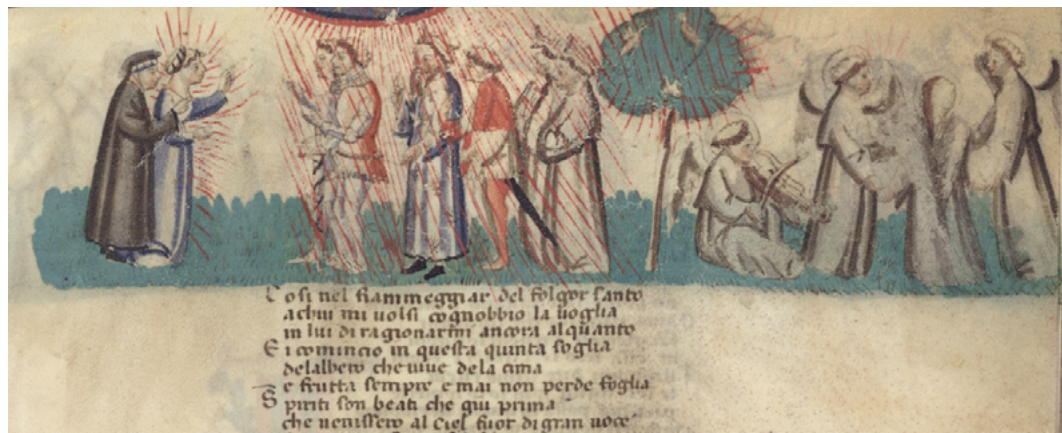 Cosi nel fiammeggiar del folgor santo
achui mi uolsi cognobbio la uoglia
in lui di ragionarmi ancora alquanto
E i comincio in questa quinta soglia
delalbero che uiue dela cima
e frutta sempre e mai non perde foglia
Spiriti son beati che giu prima
che uenissero al ciel fuor di gran uoce